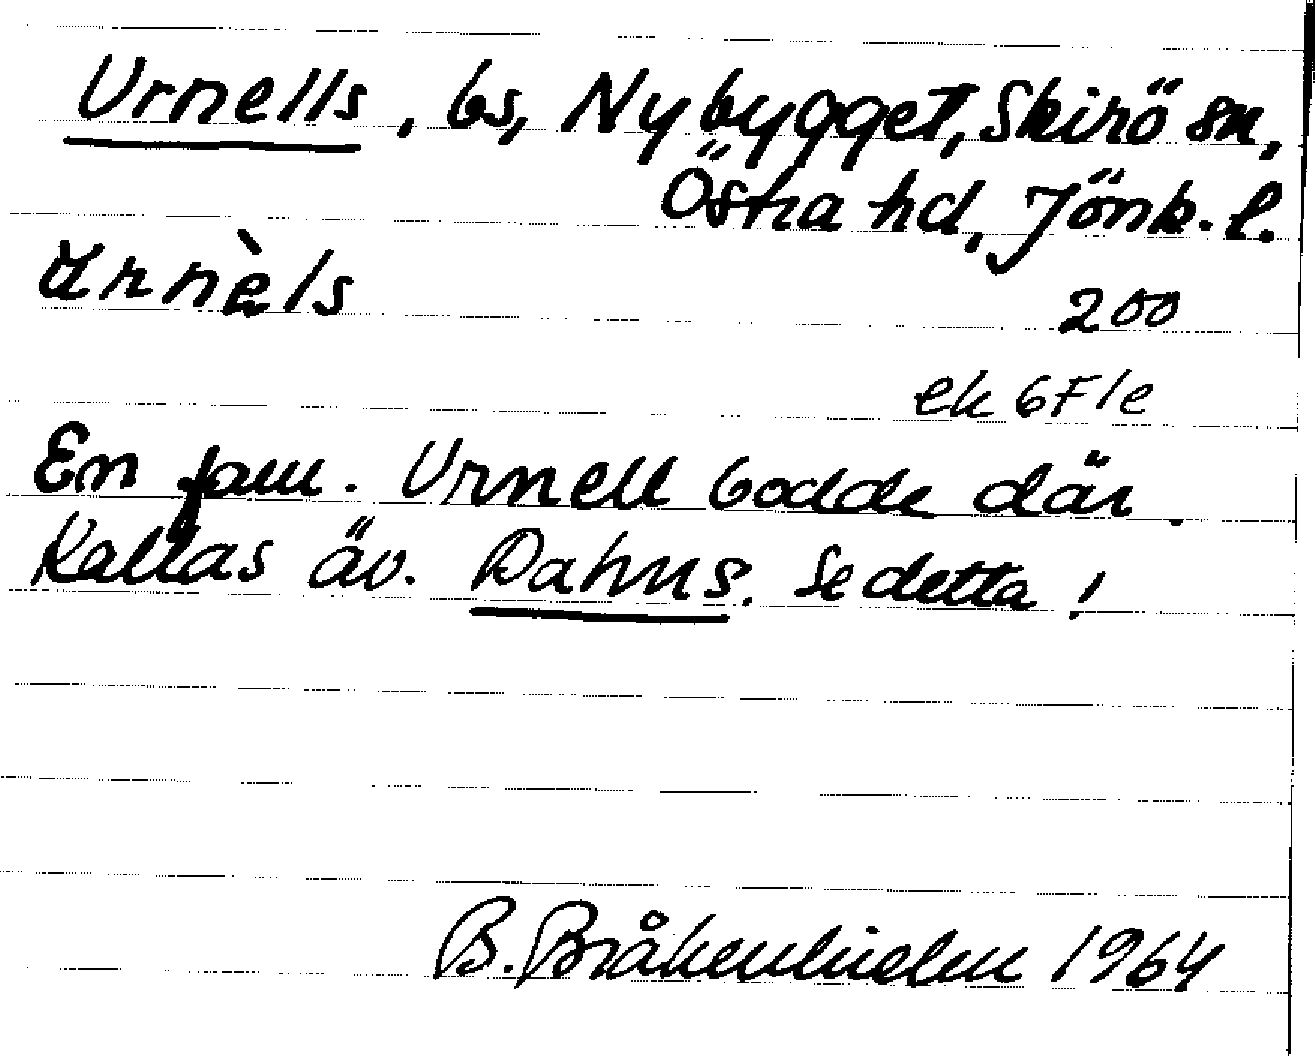 Urnells, bs, Nybygget, Skirö sn,
Östra hd, Jönk. l.
Urnèls
200
ek 6F1e
En fam. Urnell bodde där.
Kallas äv. Dahns. Se detta!
B. Bråkenhielm 1964